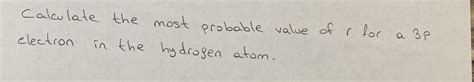 Calculate the most probable value of r for a 3p
electron in the hydrogen atom.